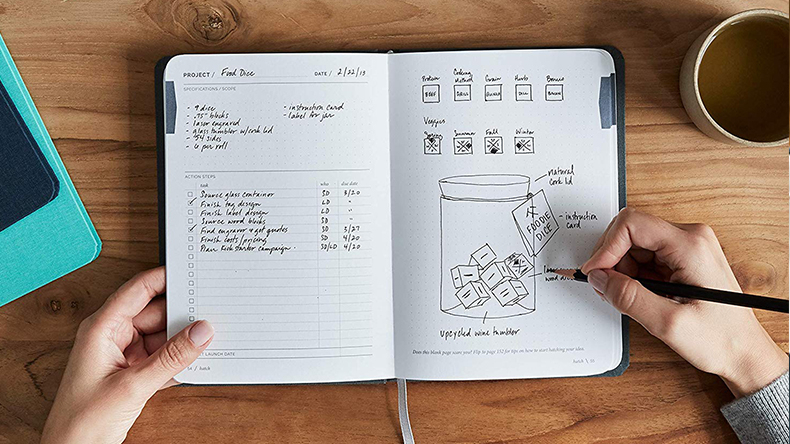 PROJECT / Food Dice DATE / 2/22/13
SPECIFICATIONS / SCOPE
- 9 dice
- .75" blocks
- laser engraved
- glass tumbler w/cork lid
- 54 sides
- 6 per roll
- instruction card
- label for jar
ACTION STEPS
task who due date
Source glass container SD 3/20
Finish tag design LD "
Finish label design LD
Source wood blocks SD "
Find engraver & get quotes SD 3/27
Finish costs/pricing SD 4/20
Plan Kickstarter campaign SD/LD 4/20
LAUNCH DATE
/ hatch
Protein Cooking Method Grain Herb Bonus
BEEF GRILL
Veggies
Summer Fall Winter
natural
cork lid
FOODIE
DICE
- instruction
card
wood
upcycled wine tumbler
Does this blank page scare you? Flip to page 132 for tips on how to start hatching your idea.
hatch